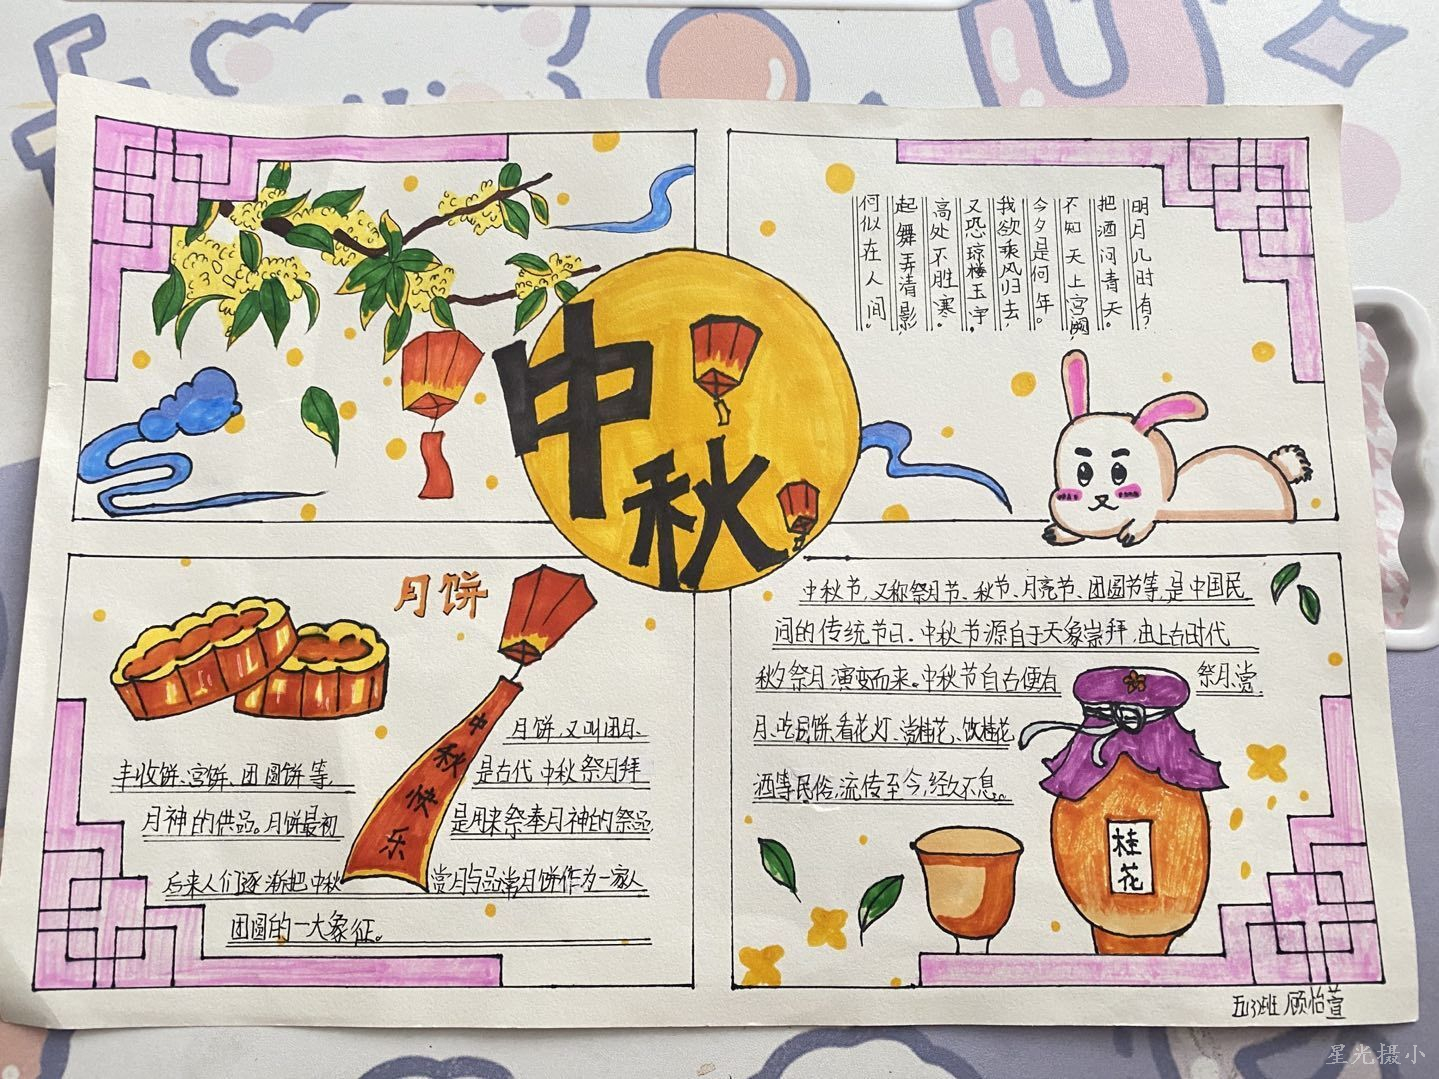 中秋
明月几时有？
把酒问青天。
不知天上宫阙，
今夕是何年。
我欲乘风归去，
又恐琼楼玉宇，
高处不胜寒。
起舞弄清影，
何似在人间。
月饼
中秋快乐
月饼，又叫团月、
丰收饼、宫饼、团圆饼等，是古代中秋祭月拜
月神的供品。月饼最初是用来祭奉月神的祭品，
后来人们逐渐把中秋赏月与品尝月饼作为一家人
团圆的一大象征。
中秋节，又称祭月节、秋节、月亮节、团圆节等，是中国民
间的传统节日。中秋节源自于天象崇拜，由上古时代
秋夕祭月演变而来。中秋节自古便有祭月、赏
月、吃月饼、看花灯、赏桂花、饮桂花
酒等民俗，流传至今，经久不息。
桂花
五(3)班 顾怡萱
星光摄小